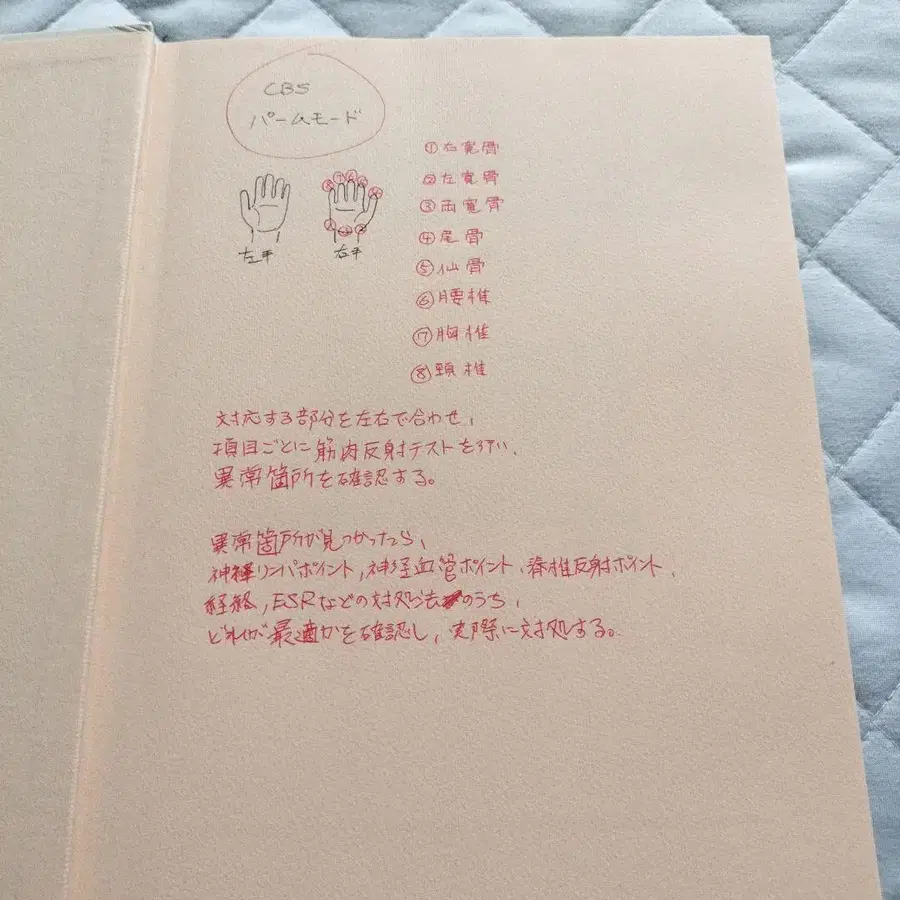 CBS
パームモード
左手
右手
①右寛骨
②左寛骨
③両寛骨
④尾骨
⑤仙骨
⑥腰椎
⑦胸椎
⑧頸椎
対応する部分を左右で合わせ、
項目ごとに筋肉反射テストを行い、
異常箇所を確認する。
異常箇所が見つかったら、
神経リンパポイント,神経血管ポイント,脊椎反射ポイント,
経絡,ESRなどの対処法のうち、
どれが最適かを確認し、実際に対処する。